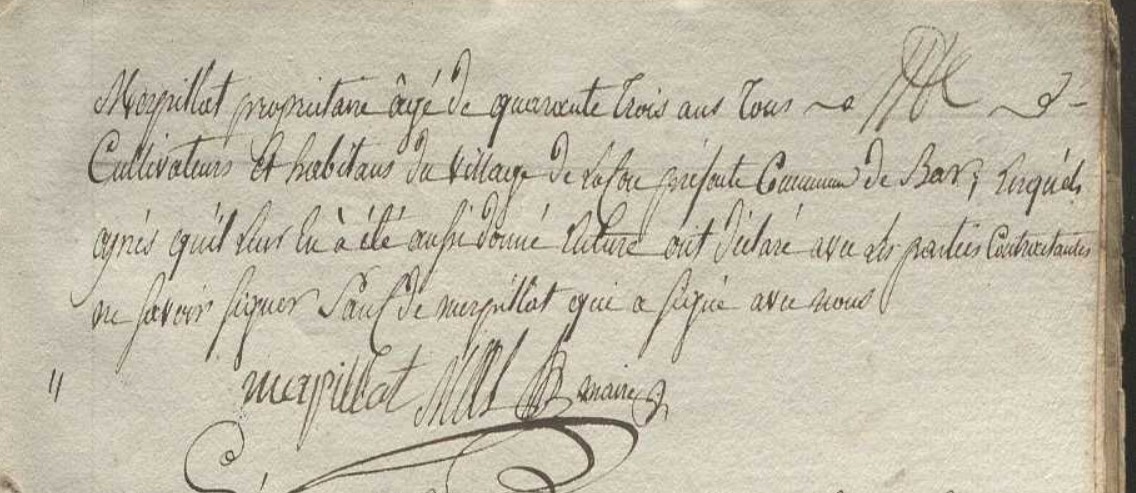 Merpillat propriétaire âgé de quarante trois ans Tous
Cultivateurs et habitans du village de présente Commune de Bar; lesquels
après qu'il leur en à été aussi donné lecture ont déclaré avec les parties Contractantes
ne savoir signer Sauf de merpillat qui a signé avec nous
merpillat maire